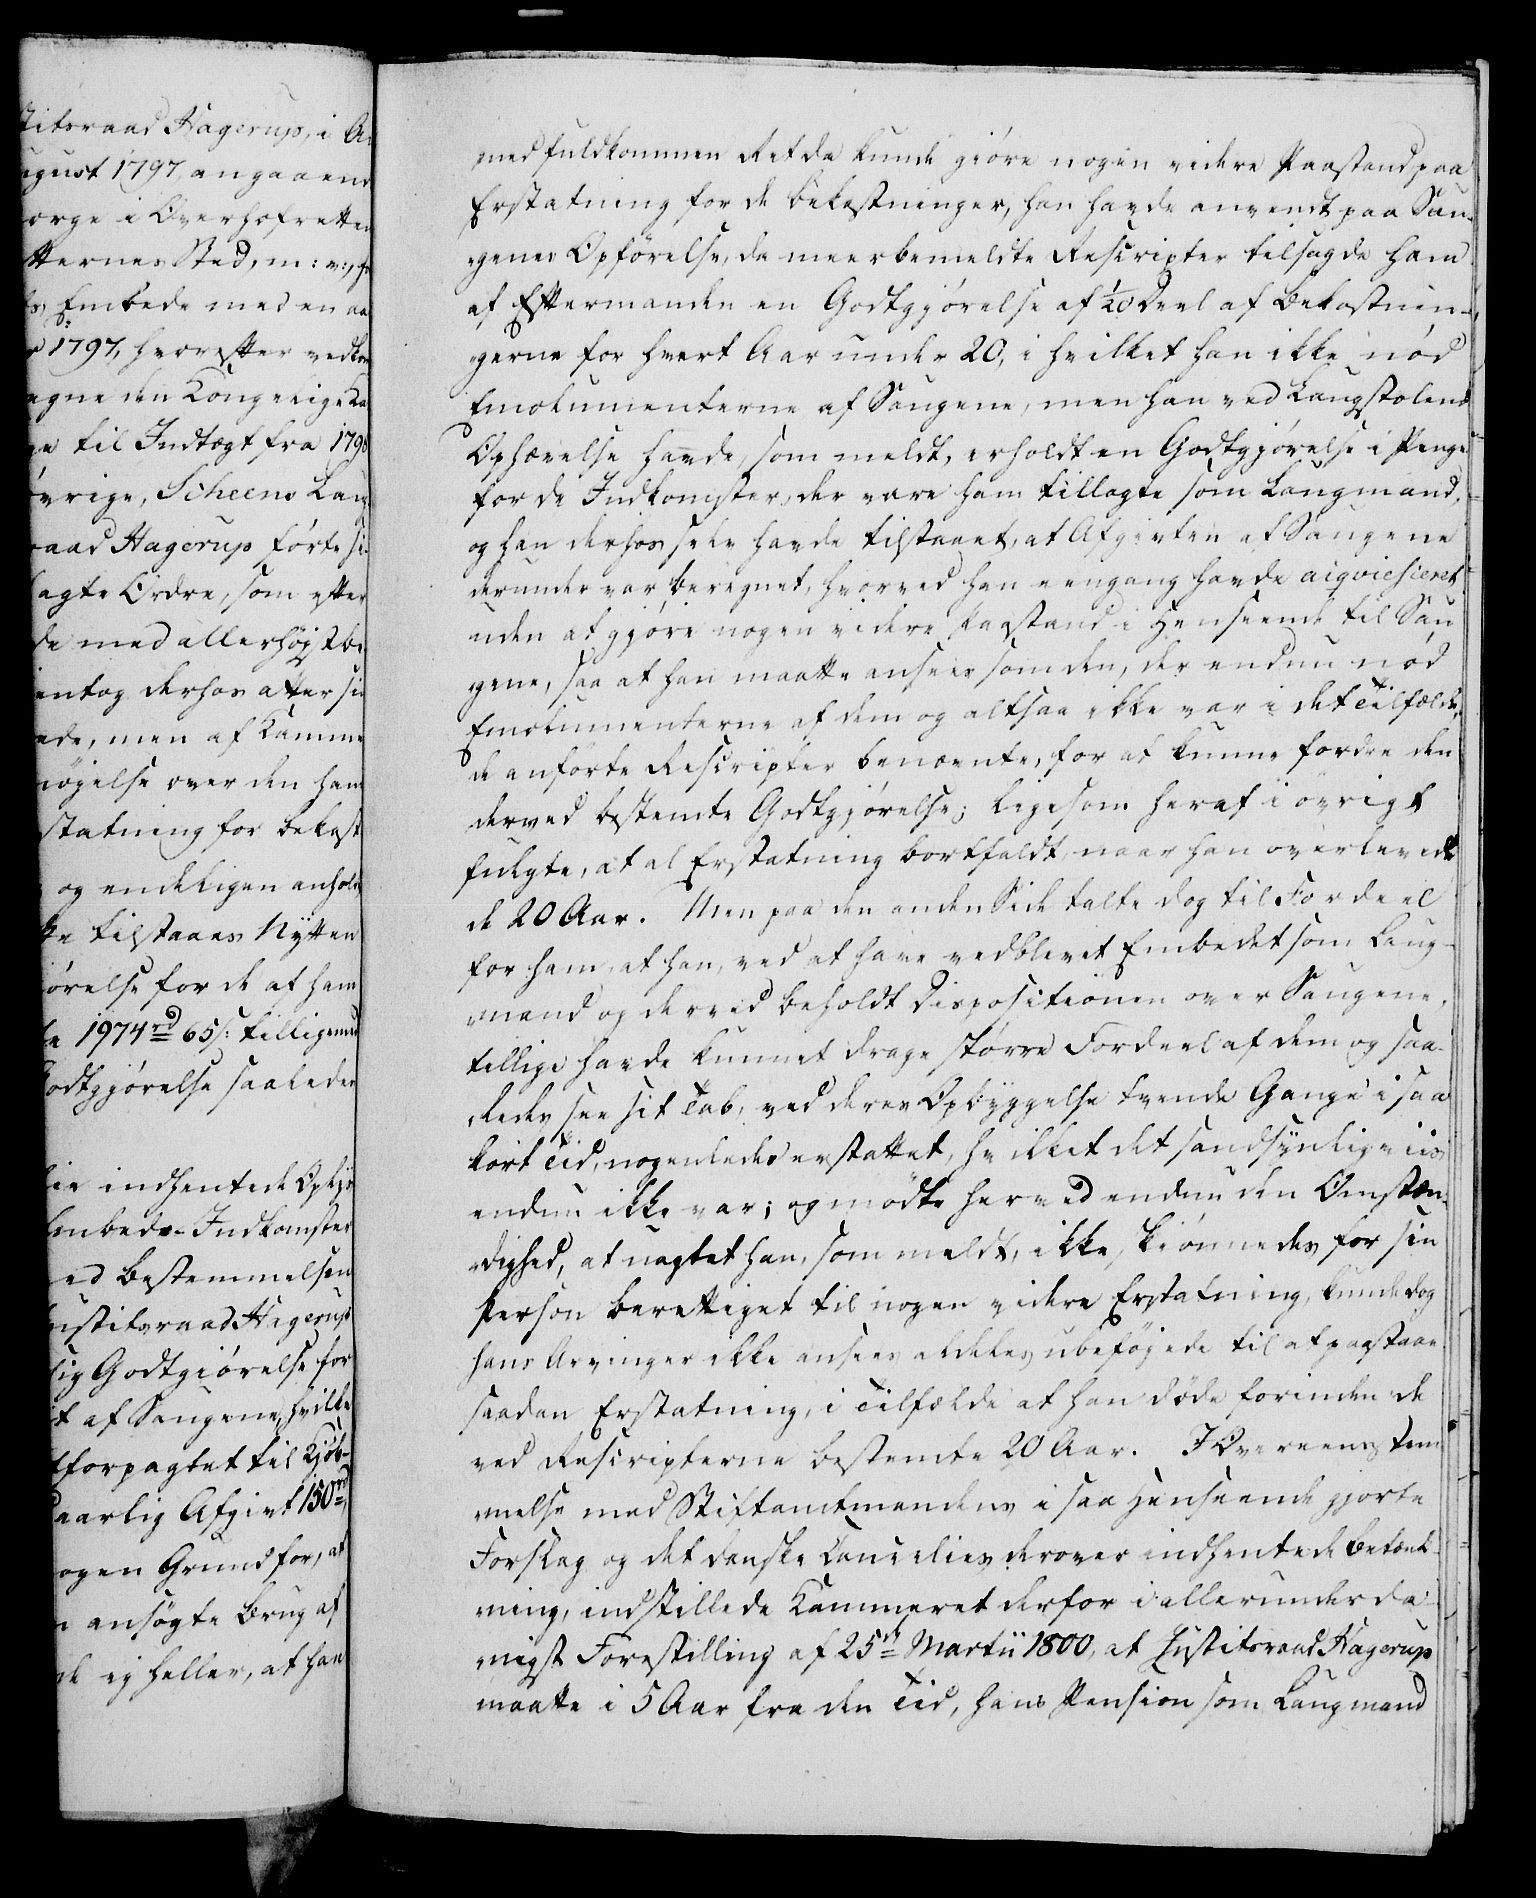 titsraad Hagerup, i A
ugust 1797, angaaend
orge i Overhofretten
tternes Sted, m: v:,
s Embede med en aa
1797, hvorefter vedkom
egne den Kongelige Ka
ge til Indtægt fra 1798
övrige, Scheens Lau
raad Hagerup førte si
agte Ordre, som efter
de med allerhøjstbe
entog derhos atter si
ede, men af Kamme
nöjelse over den ham
statning for bekost
og endeligen anhold
ke tilstaaes Nytten
örelse for de af ham
le 1974rd 65s: tilligemed
odtgjørelse saaledes
lie indhentede Oplys
Embeds-Indkomster
ed Bestemmelsen
ustitsraad Hagerup
lig Godtgiørelse for
t af Saugene, hvilke
tforpagtet til Kjöb-
aarlig Afgivt 150rd
ogen Grund for, at
n ansøgte Brug af
de ej heller, at han
med fuldkommen Ret da kunde giøre nogen videre Paastand paa
Erstatning for de bekostninger, han havde anvendt paa Sau-
genes Opførelse, da meerbemeldte Rescripter tilsagde ham
af Eftermanden en Godtgjørelse af 1/20 Deel af Bekostnin-
gerne for hvert Aar under 20, i hvilket han ikke nød
Emolumenterne af Saugene, men han ved Laugstolens
Ophævelse havde, som meldt, erholdt en Godtgjørelse i Penge
for de Indkomster, der vare ham tillagte som Laugmand,
og han derhos selv havde tilstaaet, at Afgivten af Saugene
derunder var beregnet, hvorved han eengang havde aiqviescieret
uden at gjøre nogen videre Paastand i Henseende til Sau
gene, saa at han maatte ansees som den, der endnu nød
Emolumenterne af dem og altsaa ikke var i det Tilfælde,
de anførte Rescripter benævnte, for at kunne fordre den
derved bestemte Godtgjørelse; ligesom heraf i øvrigt
fulgte, at al Erstatning bortfaldt, naar han overlevede
de 20 Aar. Men paa den anden Side talte dog til Fordeel
for ham, at han, ved at have vedblevet Embedet som Laug-
mand og derved beholdt Dispositionen over Saugene,
tillige havde kunnet drage større Fordeel af dem og saa-
ledes see sit Tab, ved deres Opbyggelse tvende Gange i saa
kort Tid, nogenledes erstattet, hvilket det sandsynligviis
endnu ikke var; og mødte herved endnu den Omstæn-
dighed, at uagtet han, som meldt, ikke skiønnedes for sin
Person berettiget til nogen videre Erstatning, kunde dog
hans Arvinger ikke ansees aldeles ubeføjede til at paastaae
saadan Erstatning, i Tilfælde at han døde forinden de
ved Rescripterne bestemte 20 Aar. I Overeensstem
melse med Stiftamtmandens i saa Henseende gjorte
Forslag og det danske Cancelies derover indhentede Betænk-
ning, indstillede Kammeret derfor i allerunderda-
nigst Forestilling af 25de Martii 1800, at Justitsraad Hagerup
maatte i 5 Aar fra den Tid, hans Pension som Laugmand